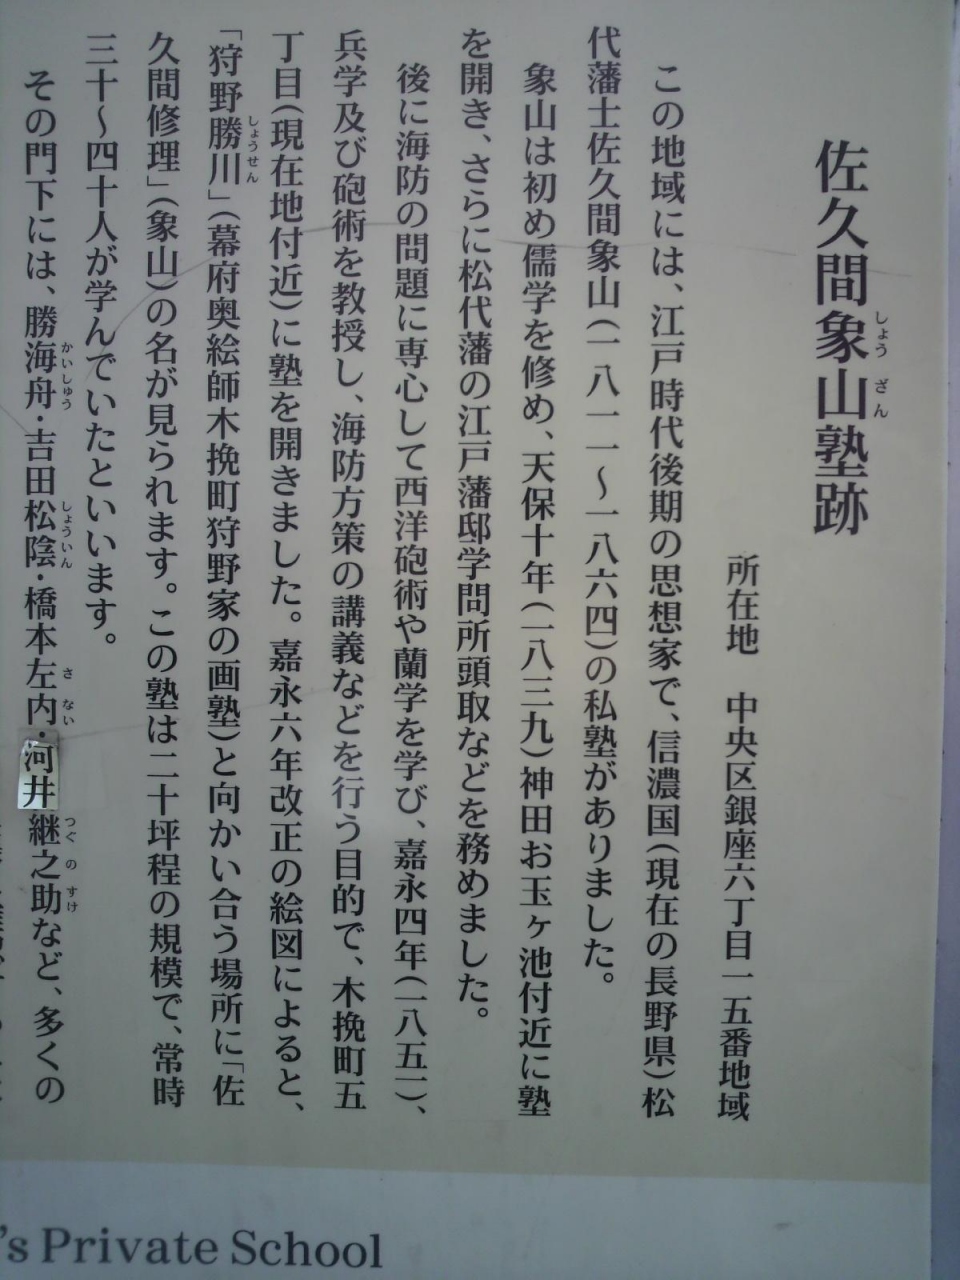 佐久間象山塾跡
しょう ざん
所在地 中央区銀座六丁目一五番地域
この地域には、江戸時代後期の思想家で、信濃国(現在の長野県)松
代藩士佐久間象山(一八一一～一八六四)の私塾がありました。
象山は初め儒学を修め、天保十年(一八三九)神田お玉ヶ池付近に塾
を開き、さらに松代藩の江戸藩邸学問所頭取などを務めました。
後に海防の問題に専心して西洋砲術や蘭学を学び、嘉永四年(一八五一)、
兵学及び砲術を教授し、海防方策の講義などを行う目的で、木挽町五
丁目(現在地付近)に塾を開きました。嘉永六年改正の絵図によると、
「狩野勝川」(幕府奥絵師木挽町狩野家の画塾)と向かい合う場所に「佐
しょうせん
久間修理」(象山)の名が見られます。この塾は二十坪程の規模で、常時
三十～四十人が学んでいたといいます。
その門下には、勝海舟・吉田松陰・橋本左内・河井継之助など、多くの
かいしゅう しょういん さ ない つぐ の すけ
's Private School